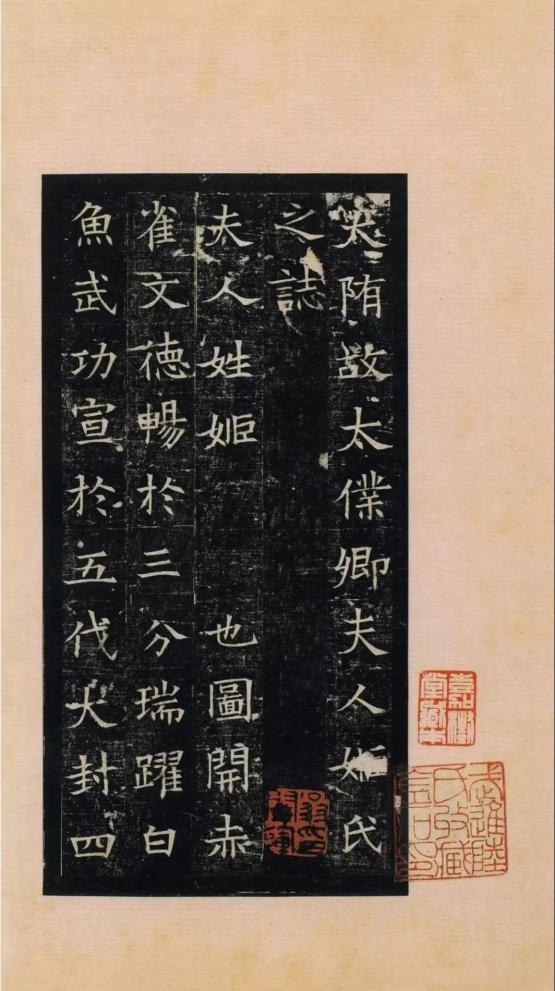 大陏故太僕卿夫人姬氏
之誌
夫人姓姬 也圖開赤
雀文德暢於三分瑞躍白
魚武功宣於五代大封四